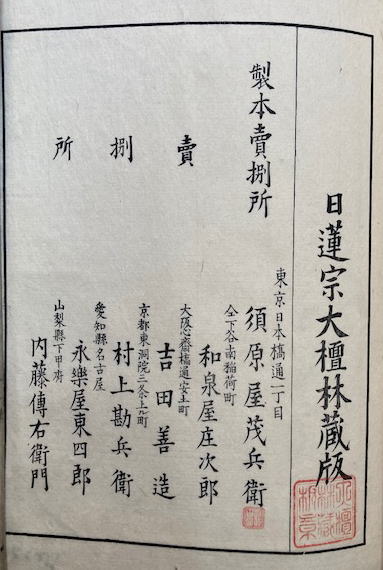 日蓮宗大檀林藏版
製本賣捌所
東京日本橋通一丁目
須原屋茂兵衛
仝下谷南稲荷町
和泉屋庄次郎
賣捌所
大阪心齋橋通安土町
吉田善造
京都東洞院三条上ル町
村上勘兵衛
愛知縣名古屋
永樂屋東四郎
山梨縣下甲府
内藤傳右衛門